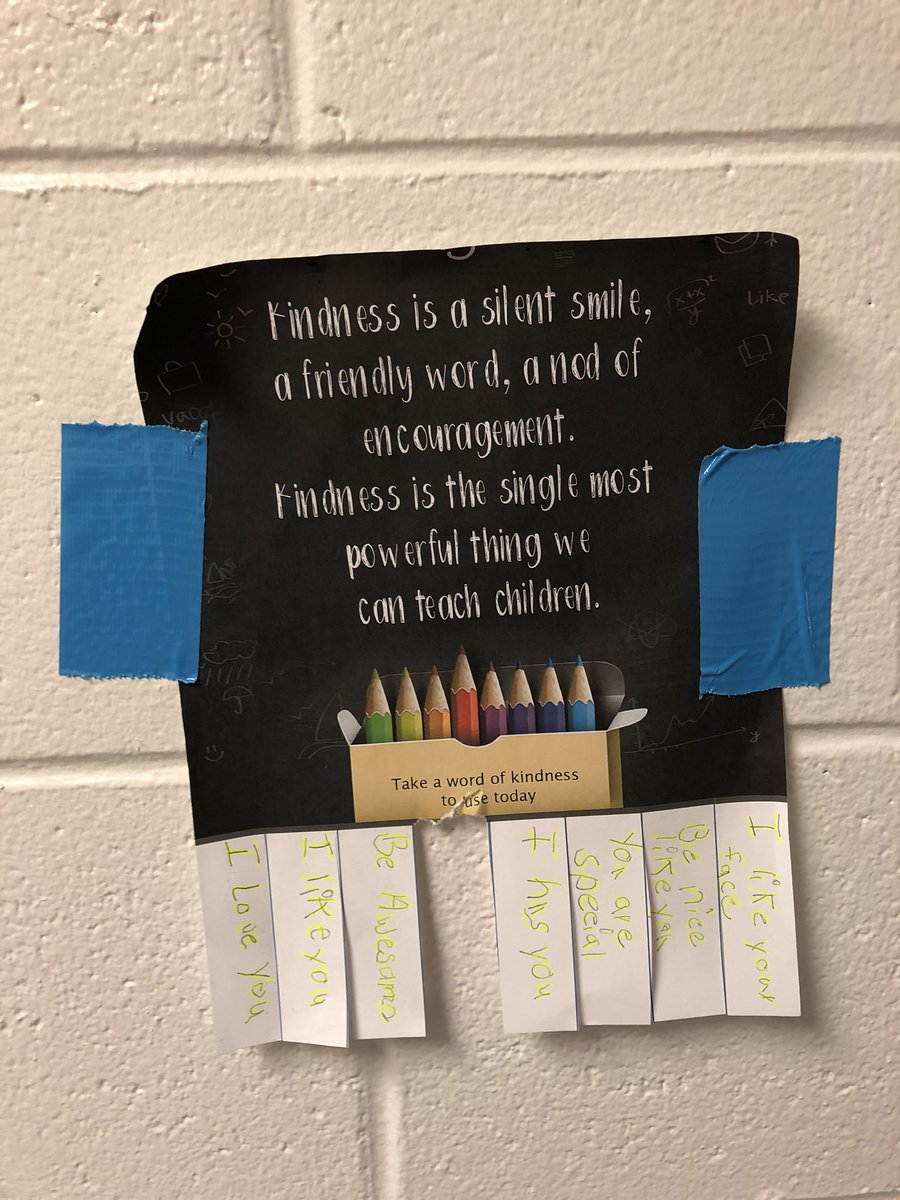 Kindness is a silent smile,
a friendly word, a nod of
encouragement.
Kindness is the single most
powerful thing we
can teach children.
(x+x)²
y
Like
vaca
y
Take a word of kindness
to use today
I Love You
I like you
Be Awesome
I hus you
You are
special
Be nice
like you
I like your
face